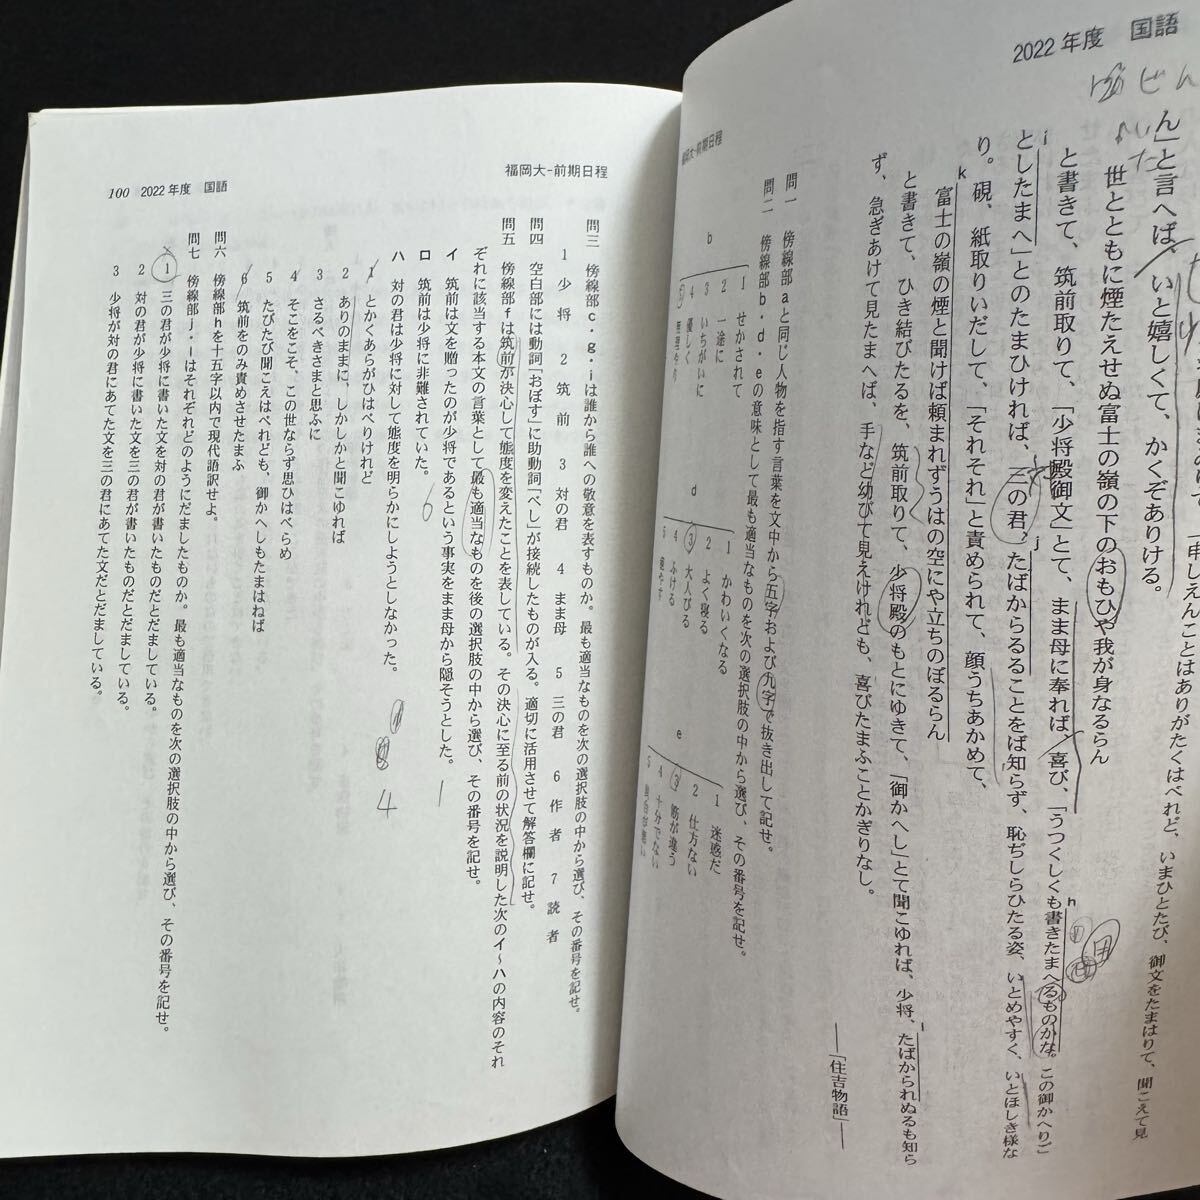 2022年度 国語
ん」と言へば、いと嬉しくて、かくぞありける。
世とともに煙たえせぬ富士の嶺の下のおもひや我が身なるらん
と書きて、筑前取りて、「少将殿御文」とて、まま母に奉れば、喜び、「うつくしくも書きたまへるものかな。この御かへり」
h
i
としたまへ」とのたまひければ、三の君、たばからるることをば知らず、恥ぢしらひたる姿、いとめやすく、いとほしき様な
j
り。硯、紙取りいだして、「それそれ」と責められて、顔うちあかめて、
k
富士の嶺の煙と聞けば頼まれずうはの空にや立ちのぼるらん
と書きて、ひき結びたるを、筑前取りて、少将殿のもとにゆきて、「御かへし」とて聞こゆれば、少将、たばかられぬるも知ら
l
ず、急ぎあけて見たまへば、手など幼びて見えけれども、喜びたまふことかぎりなし。
――「住吉物語」――
問一 傍線部aと同じ人物を指す言葉を文中から五字および九字で抜き出して記せ。
問二 傍線部b・d・eの意味として最も適当なものを次の選択肢の中から選び、その番号を記せ。
b
1 せかされて
2 一途に
3 いちがいに
4 優しく
5 無理やり
d
1 かわいくなる
2 よく寝る
3 大人びる
4 ふける
5 痩やす
e
1 迷惑だ
2 仕方ない
3 筋が違う
4 十分でない
5 具合が悪い
福岡大-前期日程
福岡大-前期日程
100 2022年度 国語
問三 傍線部c・g・iは誰から誰への敬意を表すものか。最も適当なものを次の選択肢の中から選び、その番号を記せ。
1 少将 2 筑前 3 対の君 4 まま母 5 三の君 6 作者 7 読者
問四 空白部には動詞「おぼす」に助動詞「べし」が接続したものが入る。適切に活用させて解答欄に記せ。
問五 傍線部fは筑前が決心して態度を変えたことを表している。その決心に至る前の状況を説明した次のイ～ハの内容のそれ
ぞれに該当する本文の言葉として最も適当なものを後の選択肢の中から選び、その番号を記せ。
イ 筑前は文を贈ったのが少将であるという事実をまま母から隠そうとした。 1
ロ 筑前は少将に非難されていた。 6
ハ 対の君は少将に対して態度を明らかにしようとしなかった。 4
1 とかくあらがひはべりけれど
2 ありのままに、しかしかと聞こゆれば
3 さるべきさまと思ふに
4 そこをこそ、この世ならず思ひはべらめ
5 たびたび聞こえはべれども、御かへしもたまはねば
6 筑前をのみ責めさせたまふ
問六 傍線部hを十五字以内で現代語訳せよ。
問七 傍線部j・lはそれぞれどのようにだましたものか。最も適当なものを次の選択肢の中から選び、その番号を記せ。
1 三の君が少将に書いた文を対の君が書いたものだとだましている。
2 対の君が少将に書いた文を三の君が書いたものだとだましている。
3 少将が対の君にあてた文を三の君にあてた文だとだましている。